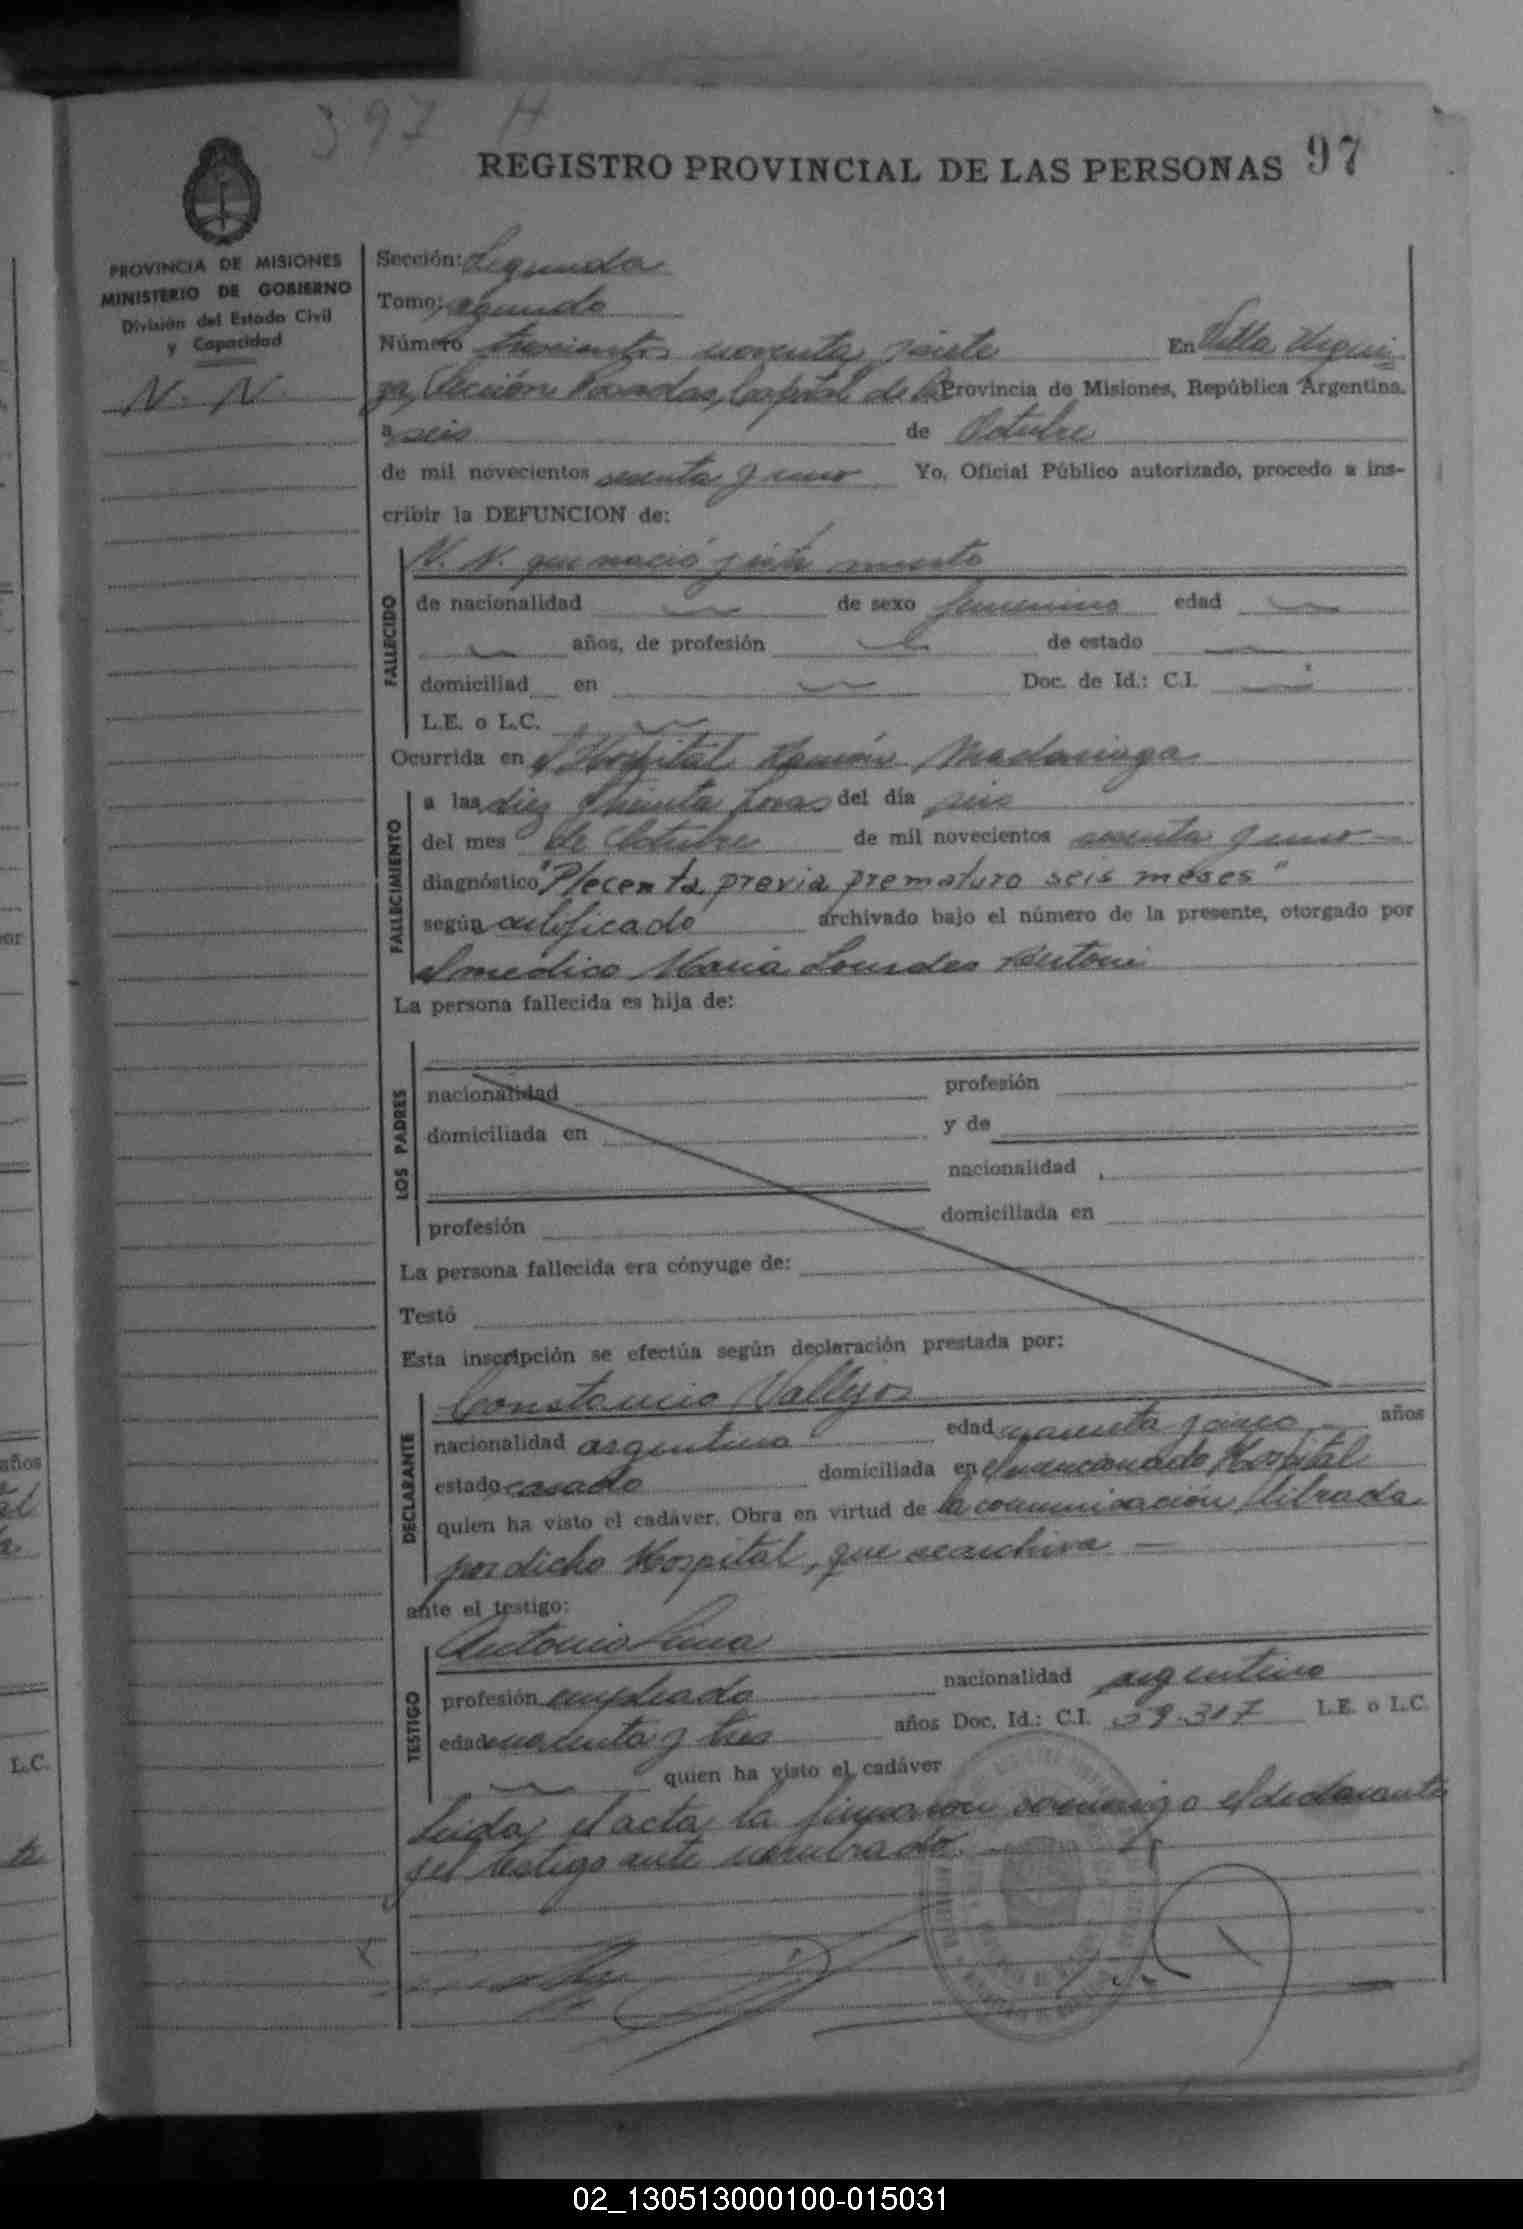 397 H
REGISTRO PROVINCIAL DE LAS PERSONAS 97
PROVINCIA DE MISIONES
MINISTERIO DE GOBIERNO
División del Estado Civil
y Capacidad
N. N.
Sección: Segunda
Tomo: segundo
Número trescientos noventa siete En Villa Urqui
za, Sección Posadas, Capital de la Provincia de Misiones, República Argentina.
a seis de Octubre
de mil novecientos sesenta y uno Yo, Oficial Público autorizado, procedo a ins-
cribir la DEFUNCION de:
FALLECIDO
N. N. que nació muerto
de nacionalidad de sexo femenino edad
años, de profesión de estado
domiciliad en Doc. de Id.: C.I.
L.E. o L.C.
Ocurrida en el Hospital Ramón Madariaga
FALLECIMIENTO
a las diez y treinta horas del día seis
del mes de Octubre de mil novecientos sesenta y uno
diagnóstico "Plecenta previa prematuro seis meses"
según certificado archivado bajo el número de la presente, otorgado por
el medico Maria Lourdes Bertoni
La persona fallecida es hija de:
LOS PADRES
nacionalidad profesión
domiciliada en y de
nacionalidad
profesión domiciliada en
La persona fallecida era cónyuge de:
Testó
Esta inscripción se efectúa según declaración prestada por:
DECLARANTE
Constancio Vallejos
nacionalidad argentino edad cuarenta y cinco años
estado casado domiciliada en el mencionado Hospital
quien ha visto el cadáver. Obra en virtud de la comunicación librada
por dicho Hospital, que se archiva
ante el testigo:
TESTIGO
Antonio Luna
profesión empleado nacionalidad argentino
edad cuarenta y tres años Doc. Id.: C.I. 39.317 L.E. o L.C.
quien ha visto el cadáver
Leida el acta la firmaron conmigo el declarante
y el testigo ante nombrado.
02_130513000100-015031